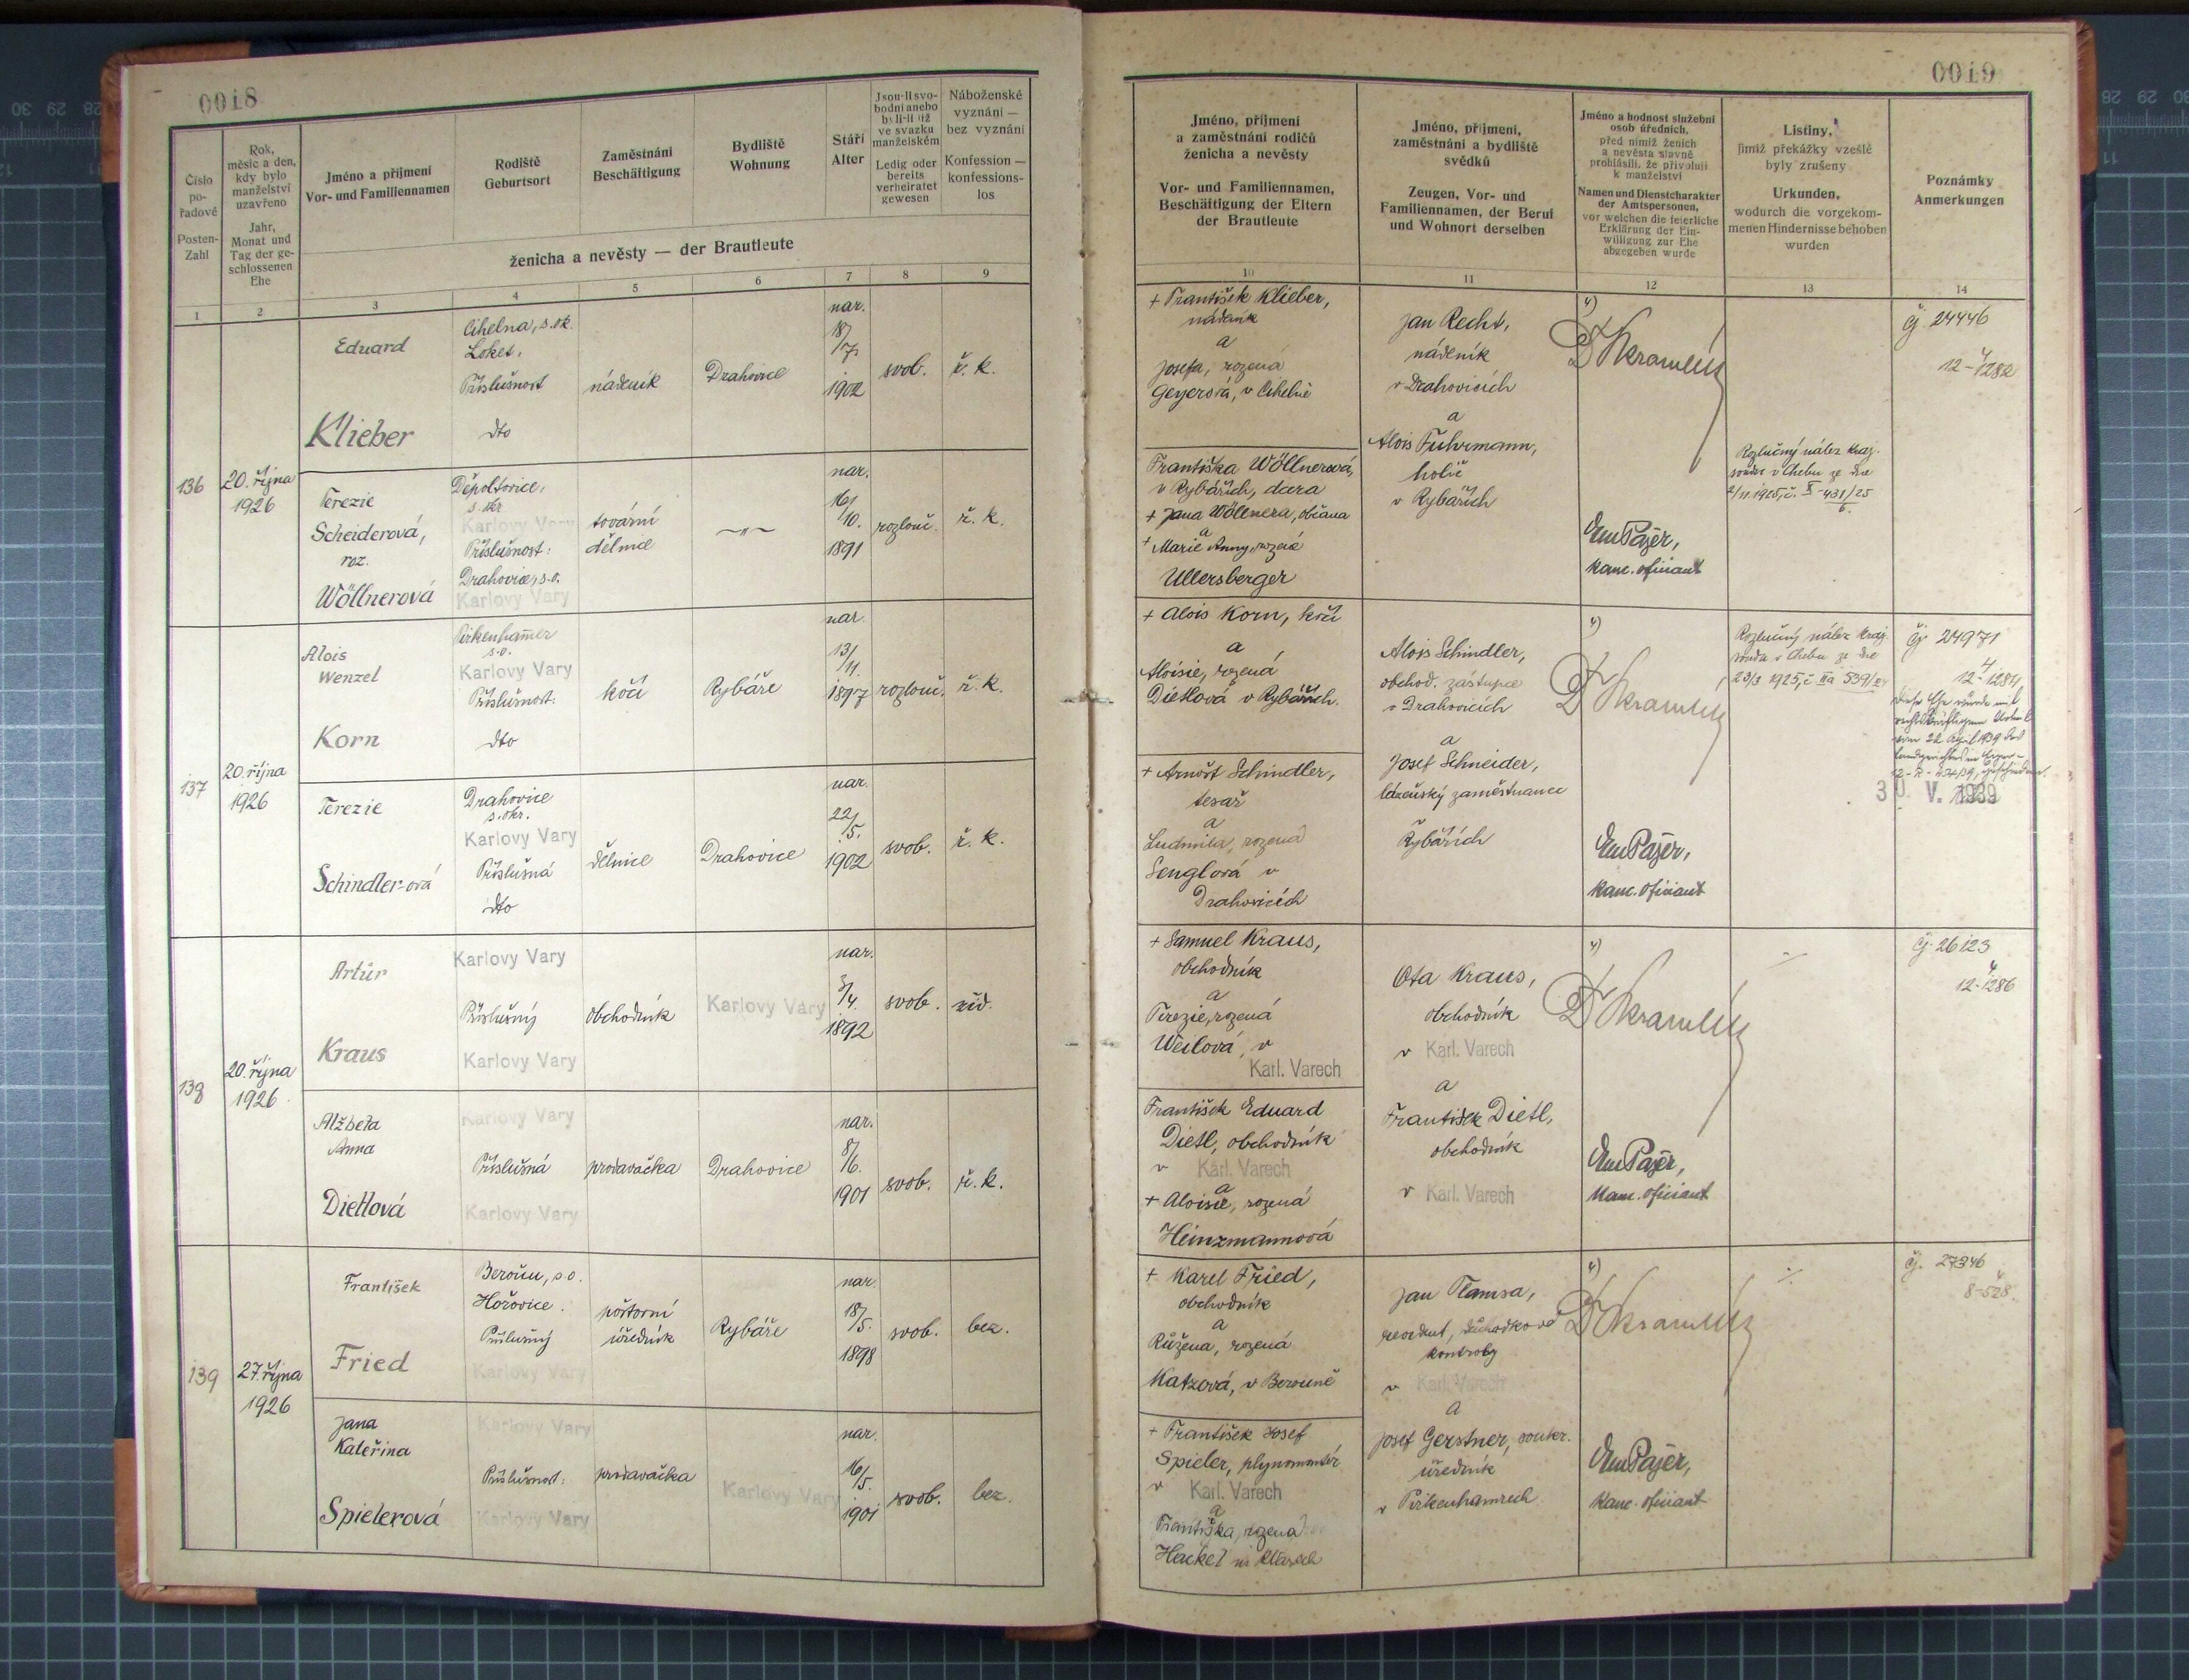 0018
Číslo
po-
řadové
Posten-
Zahl
Rok,
měsíc a den,
kdy bylo
manželství
uzavřeno
Jahr,
Monat und
Tag der ge-
schlossenen
Ehe
Jméno a příjmení
Vor- und Familiennamen
Rodiště
Geburtsort
Zaměstnání
Beschäftigung
Bydliště
Wohnung
Stáří
Alter
Jsou-li svo-
bodni anebo
byli-li již
ve svazku
manželském
Ledig oder
bereits
verheiratet
gewesen
Náboženské
vyznání —
bez vyznání
Konfession —
konfessions-
los
ženicha a nevěsty — der Brautleute
1 2 3 4 5 6 7 8 9
136
20. října
1926
Eduard
Klieber
Cihelna, s. ok.
Loket.
Příslušnost
dto
nádeník
Drahovice
nar.
18/7.
1902
svob.
ř. k.
Terezie
Scheiderová,
roz.
Wöllnerová
Děpoltovice,
s. okr.
Karlovy Vary
Příslušnost:
Drahovice, s. o.
Karlovy Vary
tovární
dělnice
—„—
nar.
16/10.
1891
rozlouč.
ř. k.
137
20. října
1926
Alois
Wenzel
Korn
Pirkenhammer
s. o.
Karlovy Vary
Příslušnost:
dto
kočí
Rybáře
nar.
13/11.
1897
rozlouč.
ř. k.
Terezie
Schindler-ová
Drahovice
s. okr.
Karlovy Vary
Příslušná
dto
dělnice
Drahovice
nar.
22/5.
1902
svob.
ř. k.
138
20. října
1926
Artur
Kraus
Karlovy Vary
Příslušný
Karlovy Vary
obchodník
Karlovy Vary
nar.
3/4.
1892
svob.
žid.
Alžběta
Anna
Dietlová
Karlovy Vary
Příslušná
Karlovy Vary
prodavačka
Drahovice
nar.
8/6.
1901
svob.
ř. k.
139
27. října
1926
František
Fried
Beroun, s. o.
Hořovice.
Příslušný
Karlovy Vary
poštovní
úředník
Rybáře
nar.
18/5.
1898
svob.
bez.
Jana
Kateřina
Spielerová
Karlovy Vary
Příslušnost:
Karlovy Vary
prodavačka
Karlovy Vary
nar.
16/5.
1901
svob.
bez.
0019
Jméno, příjmení
a zaměstnání rodičů
ženicha a nevěsty
Vor- und Familiennamen,
Beschäftigung der Eltern
der Brautleute
Jméno, příjmení,
zaměstnání a bydliště
svědků
Zeugen, Vor- und
Familiennamen, der Beruf
und Wohnort derselben
Jméno a hodnost služební
osob úředních,
před nimiž ženich
a nevěsta slavně
prohlásili, že přivolují
k manželství
Namen und Dienstcharakter
der Amtspersonen,
vor welchen die feierliche
Erklärung der Ein-
willigung zur Ehe
abgegeben wurde
Listiny,
jimiž překážky vzešlé
byly zrušeny
Urkunden,
wodurch die vorgekom-
menen Hindernisse behoben
wurden
Poznámky
Anmerkungen
10 11 12 13 14
+ František Klieber,
nádeník
a
Josefa, rozená
Geyerová, v Cihelně
Jan Recht,
nádeník
v Drahovicích
a
Alois Fuhrmann,
holič
v Rybářích
čj. 24446
12-4/282
Františka Wöllnerová,
v Rybářích, dcera
+ Jana Wöllnera, občana
a
+ Marie Anny, rozené
Ullersberger
Em Pajer,
kanc. oficiant
Rozlučný nález kraj.
soudu v Chebu ze dne
2/11 1925, č. X-431/25
6.
+ Alois Korn, kočí
a
Aloisie, rozená
Dietlová v Rybářích.
Alois Schindler,
obchod. zástupce
v Drahovicích
a
Josef Schneider,
lázeňský zaměstnanec
v
Rybářích
Rozlučný nález kraj.
soudu v Chebu ze dne
23/3 1925, č. IIa 539/
čj. 24971
12-4/284
Diese Ehe wurde mit
rechtskräftigem Urteil
vom 22. April 1939 des
Landgerichtes in Eger
geschieden.
30. V. 1939
+ Arnošt Schindler,
tesař
a
Ludmila, rozená
Senglová v
Drahovicích
Em Pajer,
kanc. oficiant
+ Samuel Kraus,
obchodník
a
Terezie, rozená
Weilová, v
Karl. Varech
Ota Kraus,
obchodník
v Karl. Varech
a
František Dietl,
obchodník
v Karl. Varech
čj. 26123
12-4/286
František Eduard
Dietl, obchodník
v Karl. Varech
a
+ Aloisie, rozená
Heinzmannová
Em Pajer,
Kanc. oficiant
+ Karel Fried,
obchodník
a
Růžena, rozená
Katzová, v Berouně
Jan Tlamsa,
důchodkové
kontroly
v Karl. Varech
a
Josef Gerstner, soukr.
úředník
v Pirkenhamrech
čj. 27346
8-528
+ František Josef
Spieler, plynomontér
v Karl. Varech
a
Františka, rozená
Hackel
Em Pajer,
kanc. oficiant